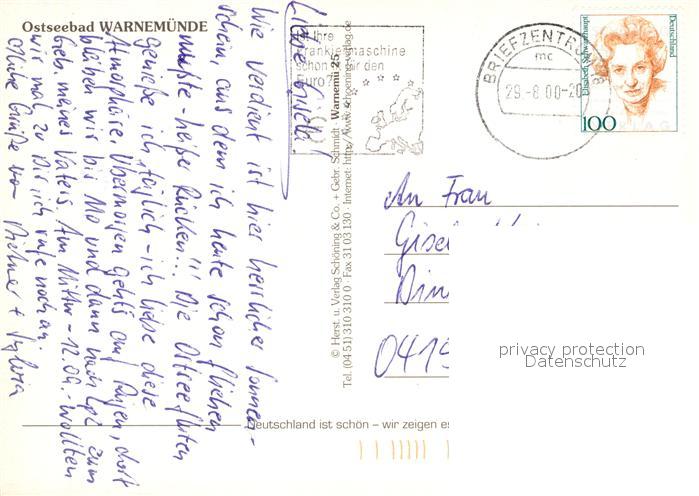 Ostseebad WARNEMÜNDE
Liebe Gisela!
Wie verdient ist hier herrlicher Sonnen-
schein, aus dem ich heute schon fliehen
mußte - heißer Rücken!!! Die Ostseefluten
genieße ich täglich - ich liebe diese
Atmosphäre. Übermorgen geht's auf Rügen, dort
bleiben wir bis Mo und dann nach Lpz zum
Geb. meines Vaters. Am Mittw. - 12.09. - wollten
wir mal zu Dir, ich rufe noch an.
Liebe Grüße von Dietmar + Sylvia
Ist Ihre
Frankiermaschine
schon für den
Euro
© Herst. u. Verlag Schöning & Co. + Gebr. Schmidt · Warnemü 25 · Internet: http://www.schoening-verlag.de
Tel. (04 51) 310 310 0 · Fax 31 03 130
BRIEFZENTRUM
mc
29.-8.00-20
Elisabeth Schwarzhaupt
Deutschland
100
An Frau
Gisel
Din
0419
privacy protection
Datenschutz
Deutschland ist schön – wir zeigen es